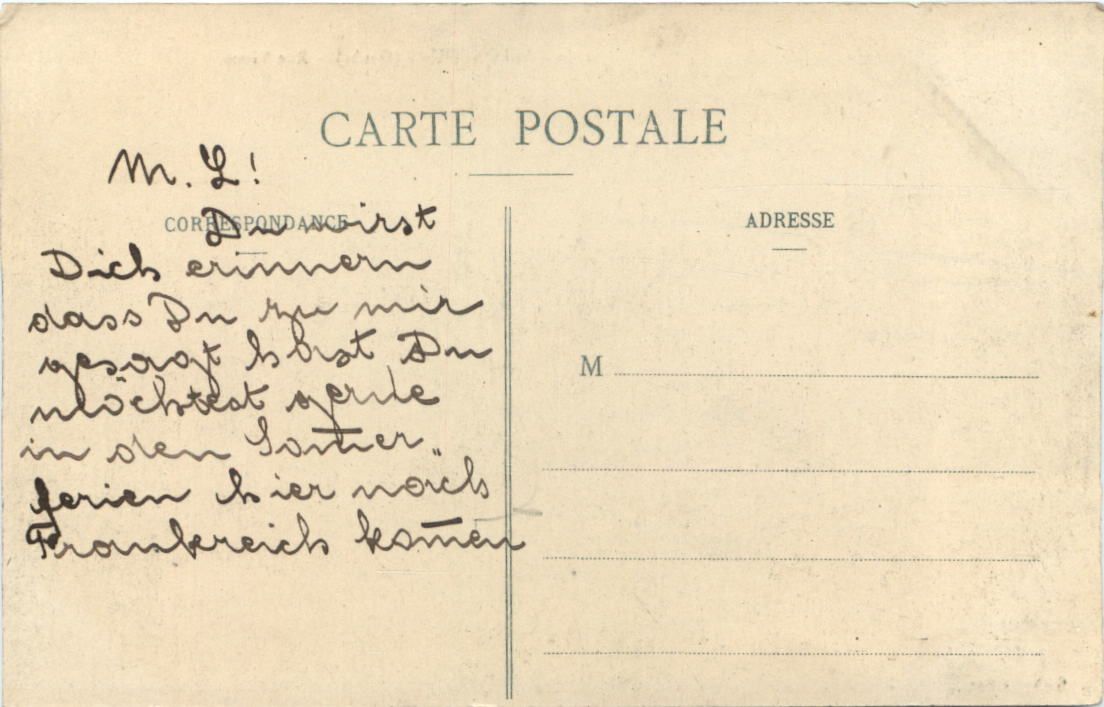 CARTE POSTALE
M. L!
CORRESPONDANCE
ADRESSE
Du wirst
Dich erinnern
dass Du zu mir
gesagt hast Du
möchtest gerne
in den Som̅er„
ferien hier nach
Frankreich kom̅en
M